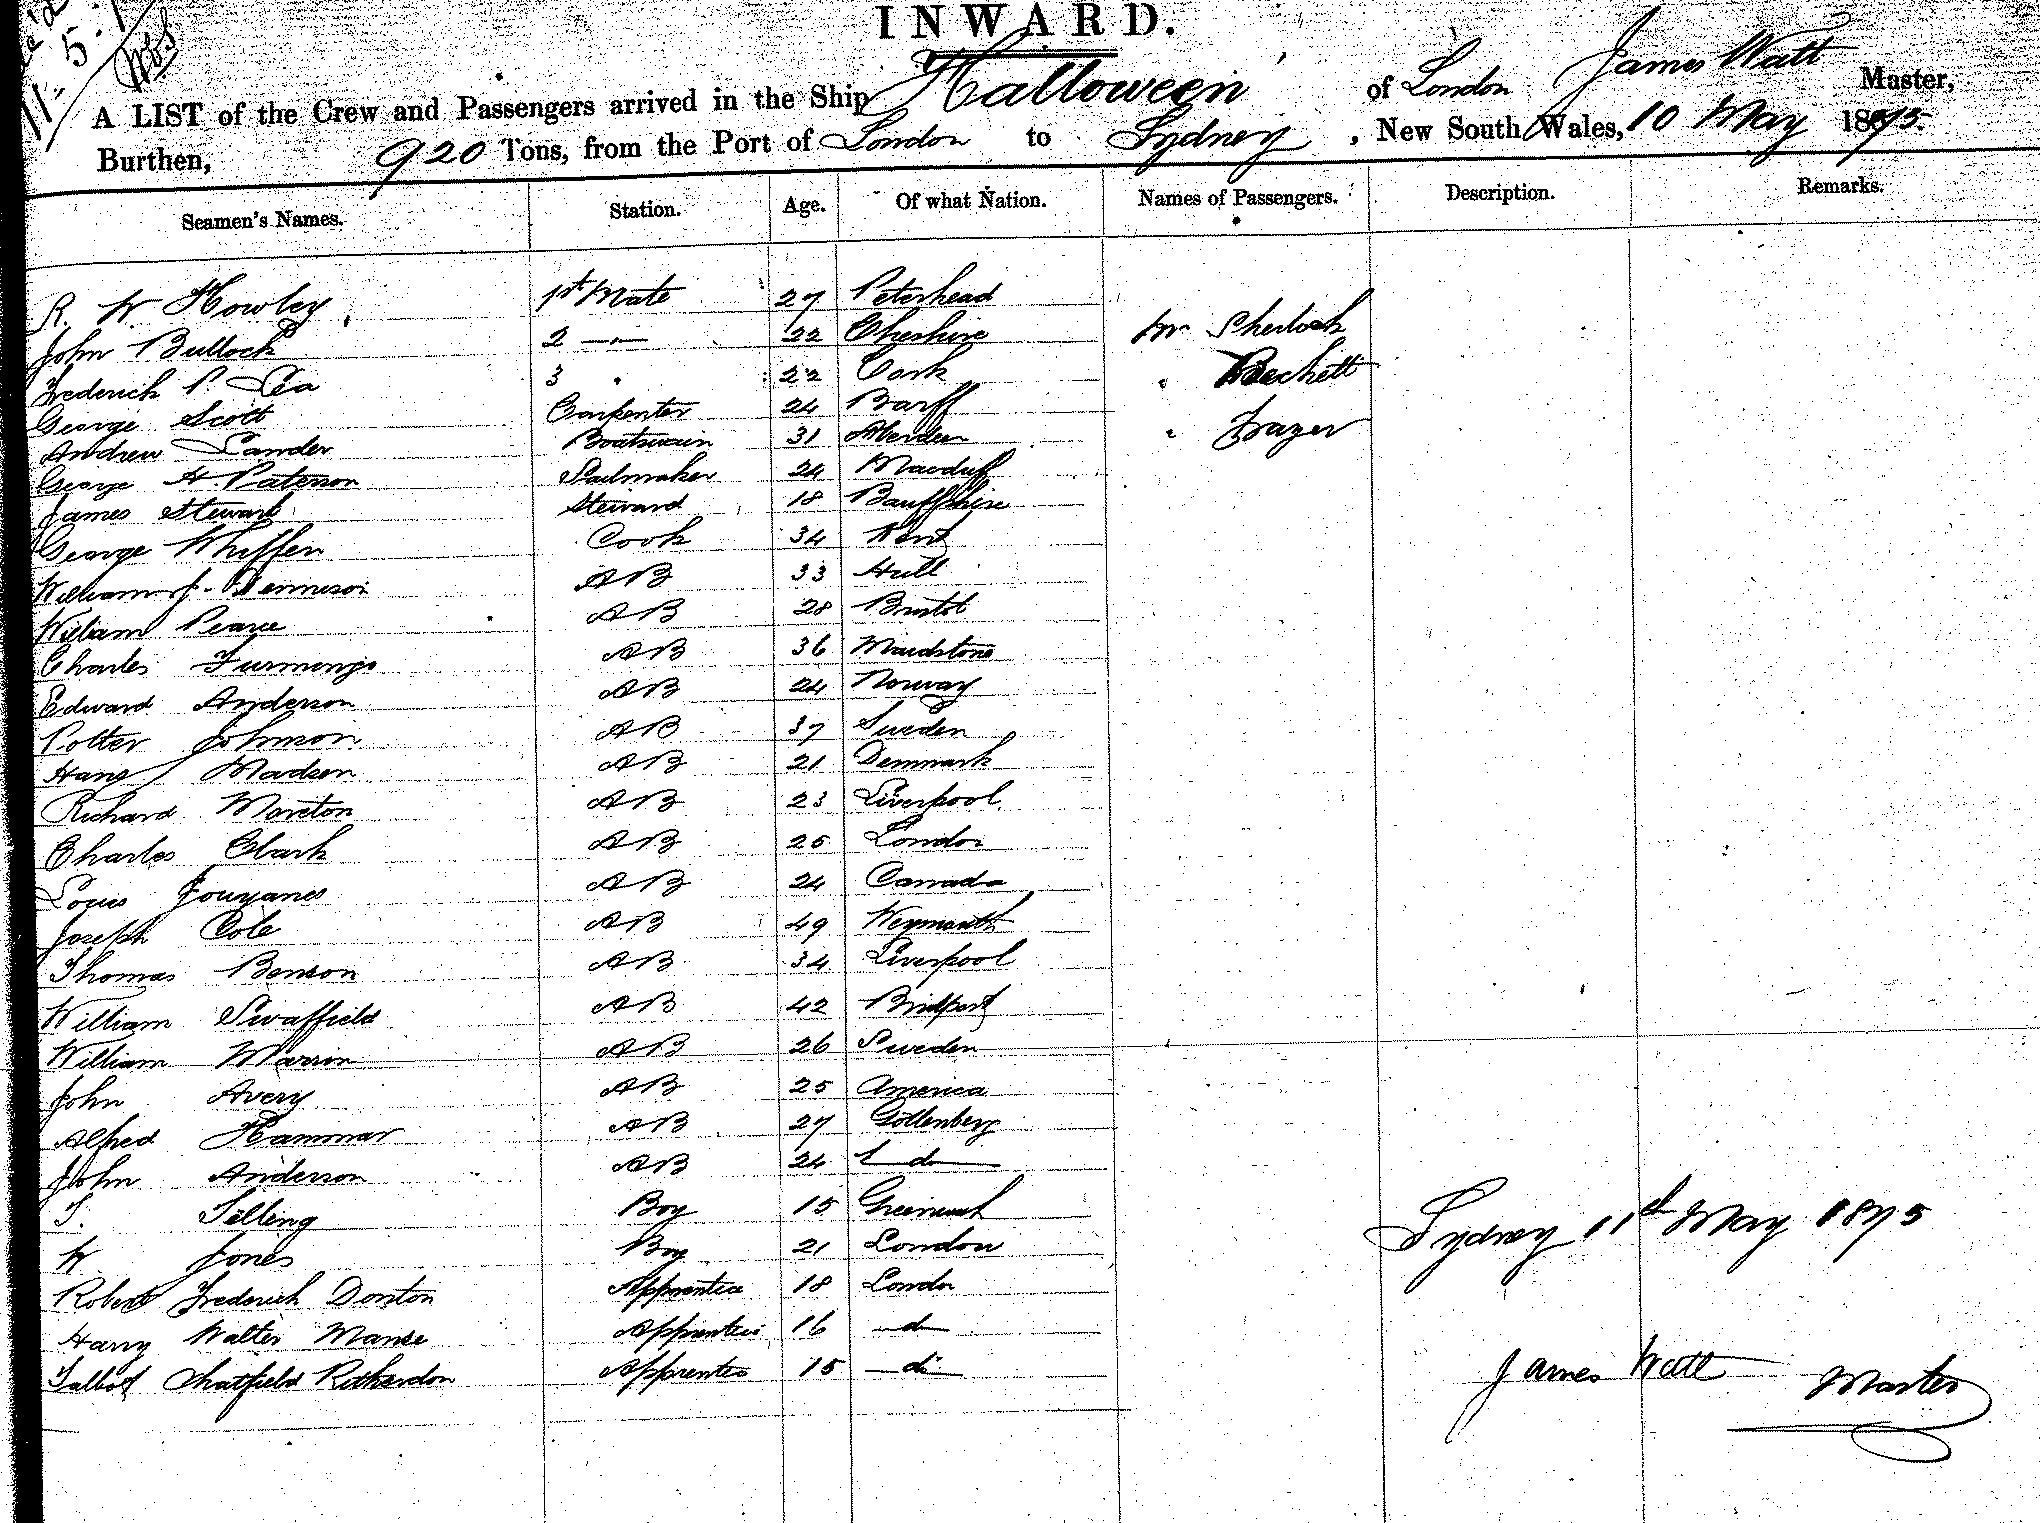 INWARD.
A LIST of the Crew and Passengers arrived in the Ship Halloween of London James Watt Master,
Burthen, 920 Tons, from the Port of London to Sydney, New South Wales, 10 May 1875.
Seamen's Names. Station. Age. Of what Nation. Names of Passengers. Description. Remarks.
R. W Howley 1st Mate 27 Peterhead
John Bullock 2 —"— 22 Cheshire Mr Sherlock
Frederick P. Lea 3 " 22 Cork " Beckett
George Scott Carpenter 24 Banff " Frazer
Andrew Lander Boatswain 31 Aberdeen
George H. Paterson Sailmaker 24 Macduff
James Stewart Steward 18 Banffshire
George Whiffen Cook 34 Kent
William J. Dennison AB 33 Hull
William Pearce AB 28 Bristol
Charles Furmings AB 36 Maidstone
Edward Anderson AB 24 Norway
Potter Johnson AB 37 Sweden
Hans Madsen AB 21 Denmark
Richard Moreton AB 23 Liverpool
Charles Clark AB 25 London
Louis AB 24 Canada
Joseph Cole AB 49 Weymouth
Thomas Benson AB 34 Liverpool
William Swaffield AB 42 Bridport
William AB 26 Sweden
John Avery AB 25 America
Alfred Hammar AB 27 Gottenberg
John Anderson AB 24 do
T. Tilling Boy 15 Greenwich
W Jones Boy 21 London
Robert Frederick Donton Apprentice 18 London
Harry Walter Manse Apprentice 16 do
Talbot Chatfield Apprentice 15 do
Sydney 11th May 1875
James Watt Master